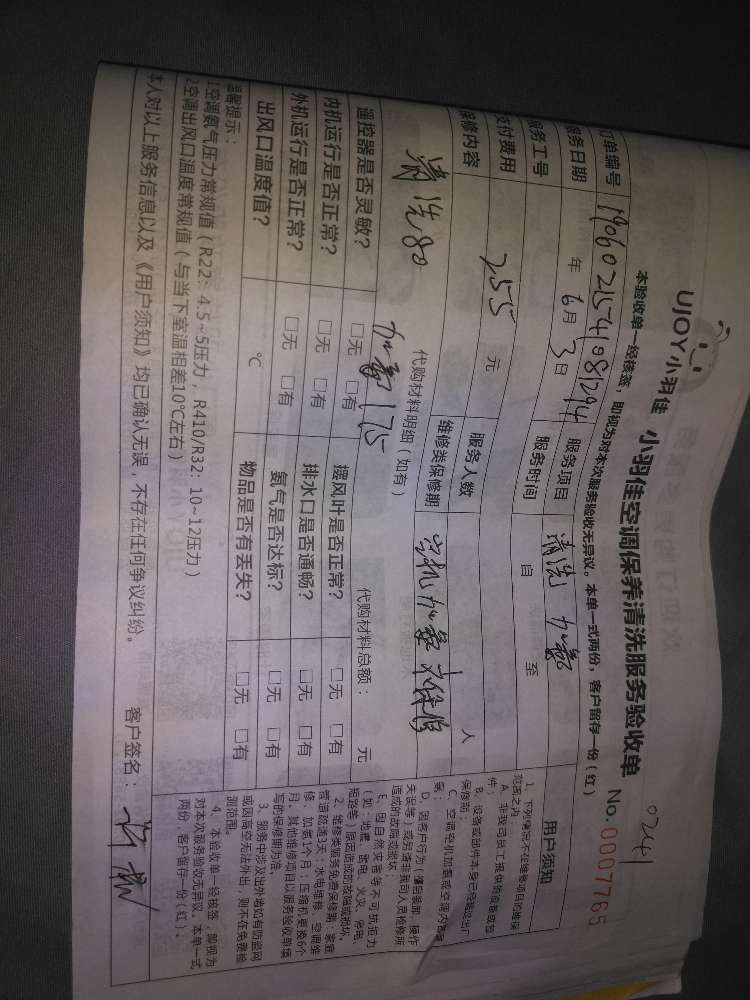 UJOY小羽佳 小羽佳空调保养清洗服务验收单 No:0007765
0241
本验收单一经核签，即视为对本次服务验收无异议。本单一式两份，客户留存一份（红）
订单编号 1906021541081294 服务项目 清洗 加氨
服务日期 年 6月 3日 服务时间 自 至
服务工号 服务人数 人
支付费用 255 元 维修类保修期 空机加氨不保修
保修内容
清洗80 加氨175
代购材料明细（如有） 代购材料总额： 元
遥控器是否灵敏？ □无 □有 摆风叶是否正常？ □无 □有
内机运行是否正常？ □无 □有 排水口是否通畅？ □无 □有
外机运行是否正常？ □无 □有 氨气是否达标？ □无 □有
出风口温度值？ ℃ 物品是否有丢失？ □无 □有
温馨提示：
1空调氨气压力常规值（R22：4.5~5压力，R410/R32：10~12压力）
2空调出风口温度常规值（与当下室温相差10℃左右）
本人对以上服务信息以及《用户须知》均已确认无误，不存在任何争议纠纷。 客户签名：
用户须知
1、下列情况不在维修项目的维保
范围之内：
A、非我司员工提供的设备或部
件；
B、设备或部件本身已经超过出厂
保修期；
C、空调空机加氨或空调内有漏
氨；
D、因客户行为（擅自装卸、操作
失误等）或另请非我司人员检修所
造成的故障或损坏
E、因自然灾害等不可抗拒力
（如：地震、雷电、火灾、停电、
短路等）原因造成的故障或损坏.
2、维修类服务免费保修期：家庭
管道疏通3天；水电维修、空调维
修、加氨1个月；压缩机更换6个
月、其他维修项目以服务验收单填
写的保修期为准。
3、服务中涉及出外墙如有防盗网
或因高空无法外出，则不在免费检
测范围。
4、本验收单一经核签，即视为
对本次服务验收无异议。本单一式
两份，客户留存一份（红）。